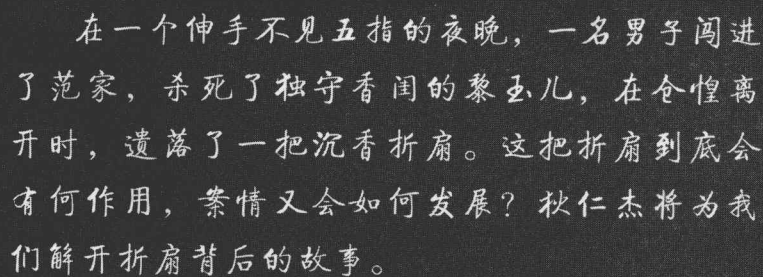 在一个伸手不见五指的夜晚，一名男子闯进
了范家，杀死了独守香闺的黎玉儿，在仓惶离
开时，遗落了一把沉香折扇。这把折扇到底会
有何作用，案情又会如何发展？狄仁杰将为我
们解开折扇背后的故事。